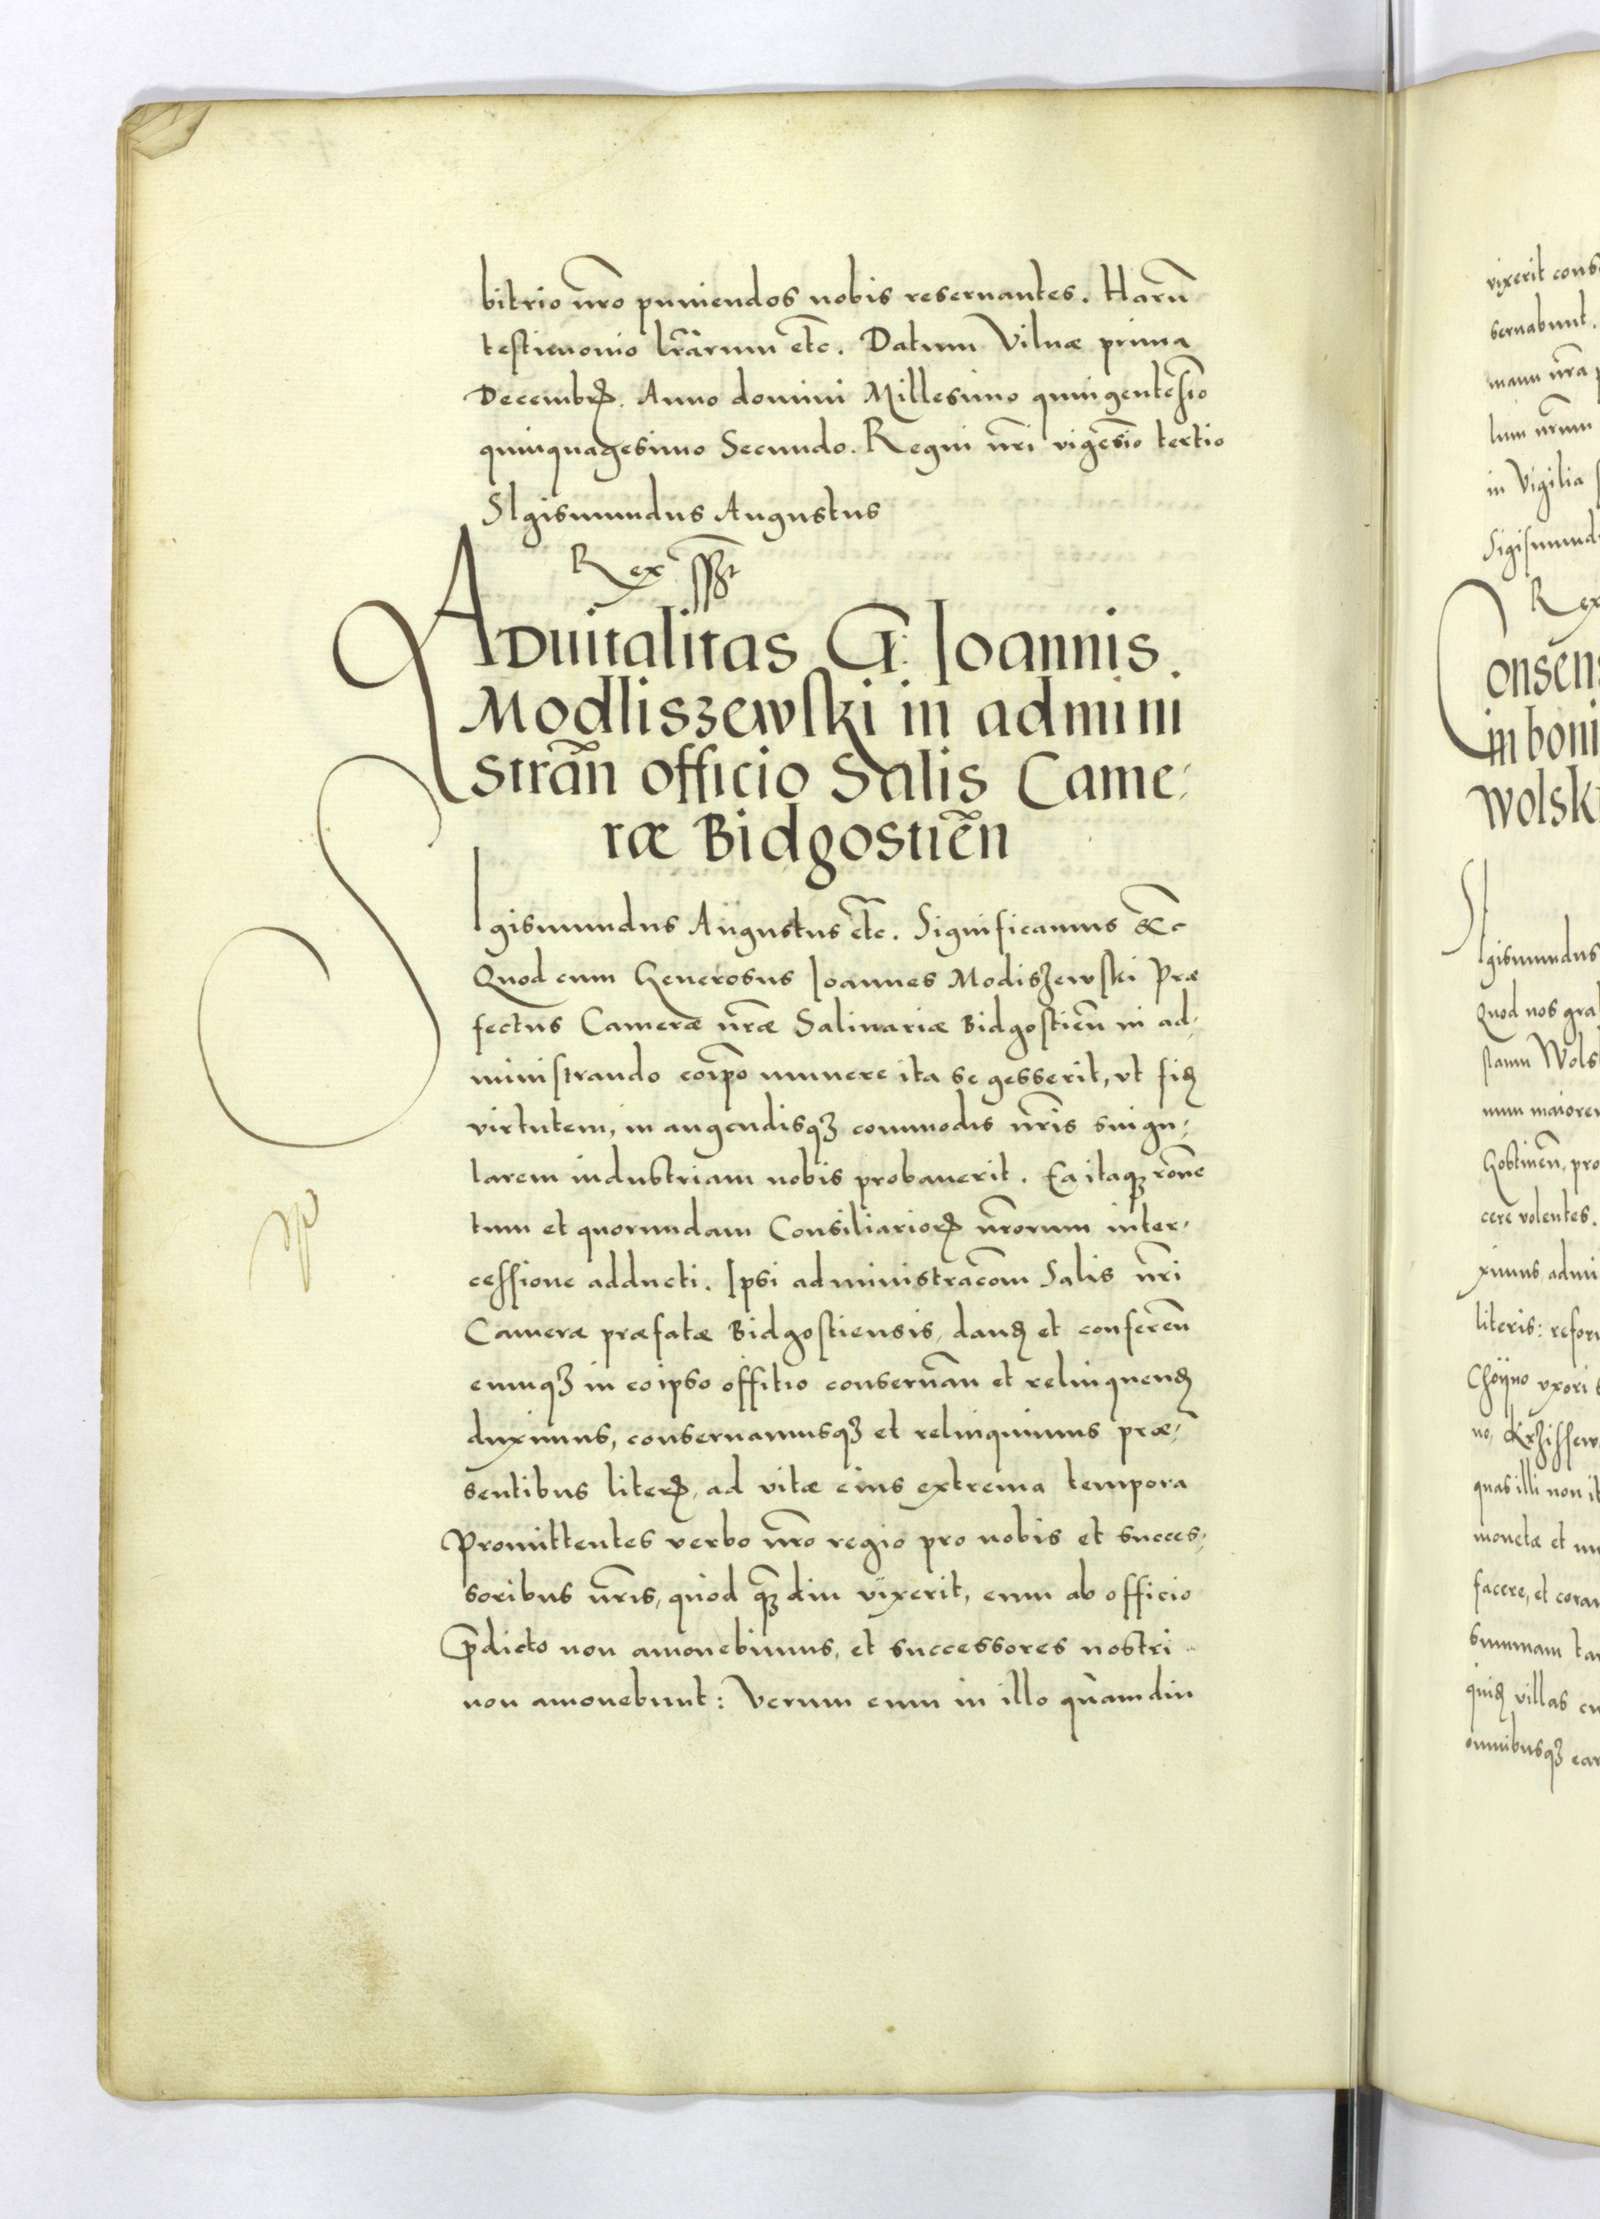 bitrio nr̃o puniendos nobis reseruantes. Harũ
testimonio lr̃arum etc̃. Datum Vilnæ prima
Decembrꝭ. Anno domini Millesimo quingentesĩo
quinquagesimo Secundo. Regni nr̃i vigesĩo tertio
SIgismundus Augustus
Rex sspt
ADuitalitas G: Ioannis
Modliszewski in admini
strañ officio Salis Came,
ræ Bidgostieñ
SIgismundus Augustus etc̃. Significamus &c
Quod cum Generosus Ioannes Modiszewski Præ
fectus Cameræ nr̃æ Salinariæ Bidgostieñ in ad,
ministrando eoip̃o munere ita se gesserit, vt fid
virtutem, in augendisqꝫ commodis nr̃is singu,
larem industriam nobis probauerit. Ea itaqꝫ rõne
tum et quorundam Consiliariorꝭ nr̃orum inter,
cessione adducti. Ipsi administracõem Salis nr̃i
Cameræ præfatæ Bidgostiensis, dand et confereñ
eumqꝫ in eo ipso offitio conseruañ et relinquend
duximus, conseruamusqꝫ et relinquimus præ,
sentibus literꝭ, ad vitæ eius extrema tempora
Promittentes verbo nr̃o regio pro nobis et succes,
soribus nr̃is, quod qꝫdiu vixerit, eum ab officio
p̃dicto non amouebimus, et successores nostri
non amouebunt: Verum eum in illo quamdiu
vixerit cons
seruabunt.
manu nr̃a p
lum nr̃um
in Vigilia
Sigismund
Rex
Consens
in boni
Wolski
SIgismundus
Quod nos gra
slaum Wols
num maiorem
Gostineñ, pro
cere volentes.
ximus, admi
literis: refor
Choijno vxori s
no, Krzissew
quas illi non it
monetæ et nu
facere, et coram
summam tan
quid villas cu
omnibusqꝫ ear